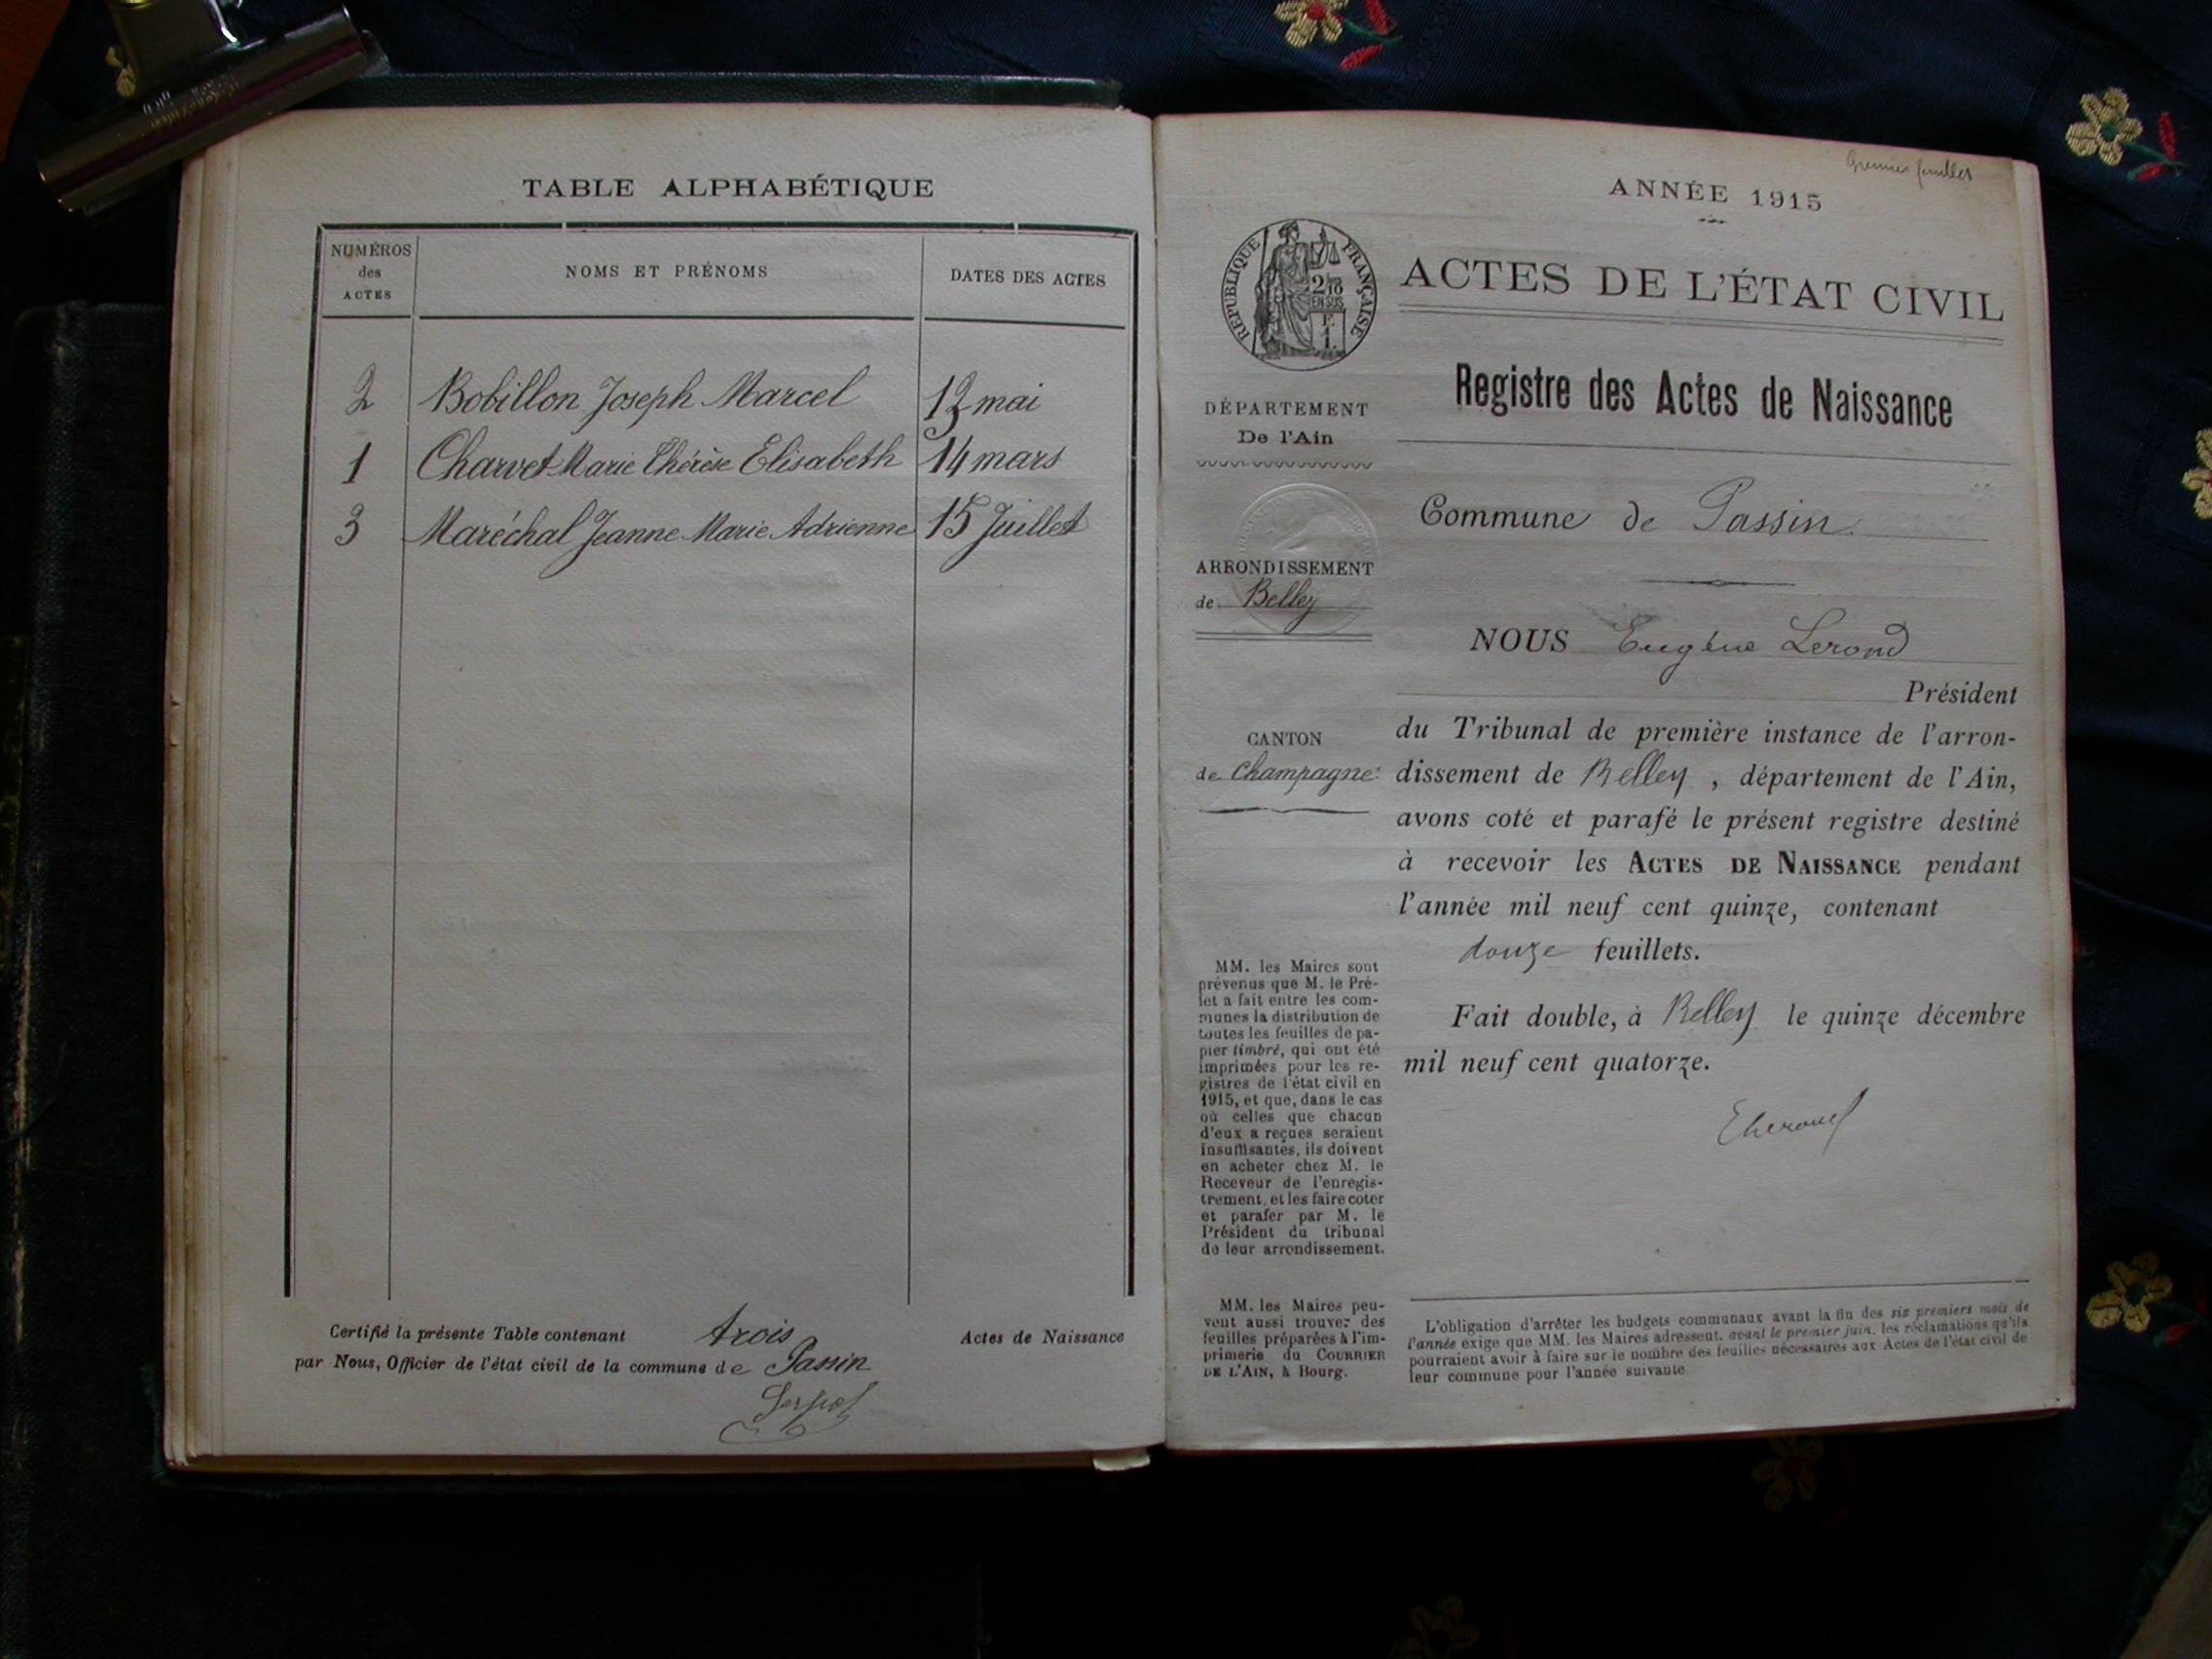 TABLE ALPHABÉTIQUE
NUMÉROS
des
ACTES
NOMS ET PRÉNOMS
DATES DES ACTES
2 Bobillon Joseph Marcel mai
1 Charvet Marie Thérèse Elisabeth 14 mars
3 Maréchal Jeanne Marie Adrienne 15 Juillet
Certifié la présente Table contenant trois Actes de Naissance
par Nous, Officier de l'état civil de la commune de Passin
premier feuillet
ANNÉE 1915
RÉPUBLIQUE FRANÇAISE
2/10
EN SUS
ACTES DE L'ÉTAT CIVIL
Registre des Actes de Naissance
DÉPARTEMENT
De l'Ain
Commune de Passin
ARRONDISSEMENT
de Belley
NOUS Eugène Lerond
Président
CANTON
de Champagne
du Tribunal de première instance de l'arron-
dissement de Belley, département de l'Ain,
avons coté et parafé le présent registre destiné
à recevoir les ACTES DE NAISSANCE pendant
l'année mil neuf cent quinze, contenant
douze feuillets.
Fait double, à Belley le quinze décembre
mil neuf cent quatorze.
MM. les Maires sont
prévenus que M. le Pré-
fet a fait entre les com-
munes la distribution de
toutes les feuilles de pa-
pier timbré, qui ont été
imprimées pour les re-
gistres de l'état civil en
1915, et que, dans le cas
où celles que chacun
d'eux a reçues seraient
insuffisantes, ils doivent
en acheter chez M. le
Receveur de l'enregis-
trement, et les faire coter
et parafer par M. le
Président du tribunal
de leur arrondissement.
MM. les Maires peu-
vent aussi trouver des
feuilles préparées à l'im-
primerie du COURRIER
DE L'AIN, à Bourg.
L'obligation d'arrêter les budgets communaux avant la fin des six premiers mois de
l'année exige que MM. les Maires adressent, avant le premier juin, les réclamations qu'ils
pourraient avoir à faire sur le nombre des feuilles nécessaires aux Actes de l'état civil de
leur commune pour l'année suivante.